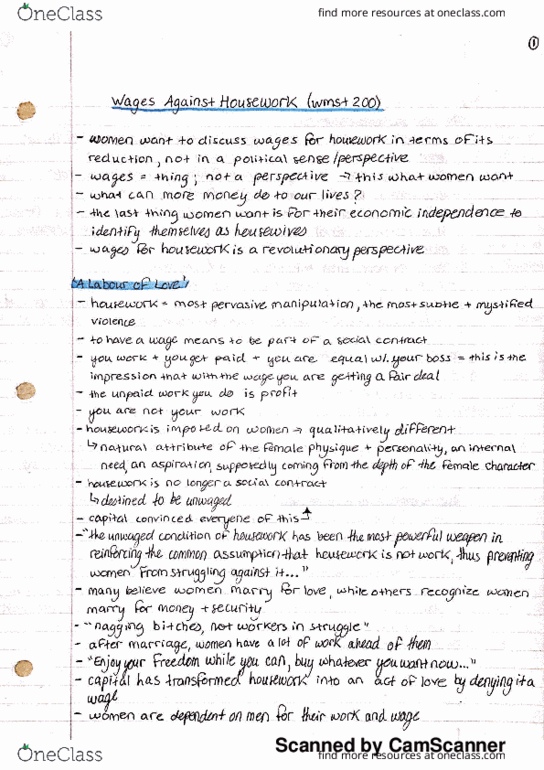 OneClass
find more resources at oneclass.com
1
Wages Against Housework (wmst 200)
- women want to discuss wages for housework in terms of its
reduction, not in a political sense/perspective
- wages = thing; not a perspective → this what women want
- what can more money do to our lives?
- the last thing women want is for their economic independence to
identify themselves as housewives
- wages for housework is a revolutionary perspective
'A Labour of Love'
- housework = most pervasive manipulation, the most subtle + mystified
violence
- to have a wage means to be part of a social contract
- you work + you get paid + you are equal w/. your boss = this is the
impression that with the wage you are getting a fair deal
- the unpaid work you do is profit
- you are not your work
- housework is imposed on women → qualitatively different
↳ natural attribute of the female physique + personality, an internal
need, an aspiration, supposedly coming from the depth of the female character
- housework is no longer a social contract
↳ destined to be unwaged
- capital convinced everyone of this
- "the unwaged condition of housework has been the most powerful weapon in
reinforcing the common assumption that housework is not work, thus preventing
women from struggling against it..."
- many believe women marry for love, while others recognize women
marry for money + security
- "nagging bitches, not workers in struggle"
- after marriage, women have a lot of work ahead of them
- "Enjoy your freedom while you can, buy whatever you want now..."
- capital has transformed housework into an act of love by denying it a
wage
- women are dependent on men for their work and wage
Scanned by CamScanner
OneClass
find more resources at oneclass.com